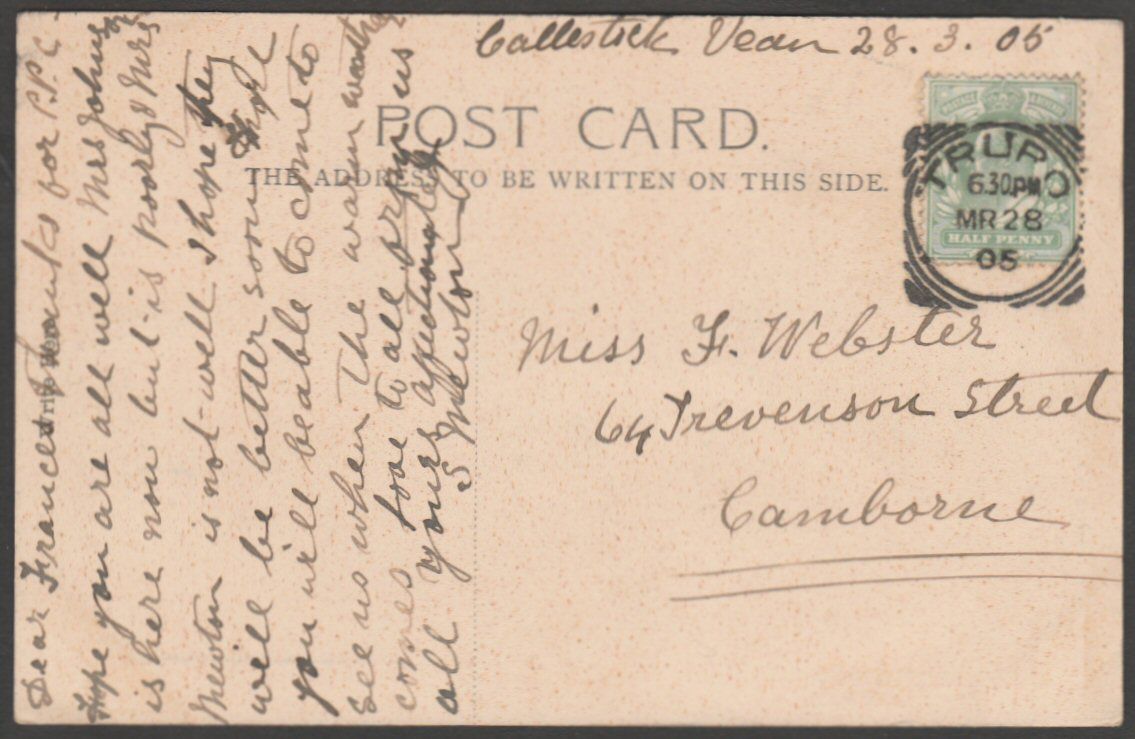 Callestick Vean 28.3.05
POST CARD.
THE ADDRESS TO BE WRITTEN ON THIS SIDE.
HALF PENNY
TRURO
6.30PM
MR 28
05
Miss F. Webster
64 Trevenson Street
Camborne
Dear Frances thanks for P.P.C.
Hope you are all well Mrs Johns
is here now but is poorly & Mrs
Mewton is not well I hope they
will be better soon I hope
you will be able to come to
see us when the warm weather
comes love to all from us
all yours affectionately
S Mewton